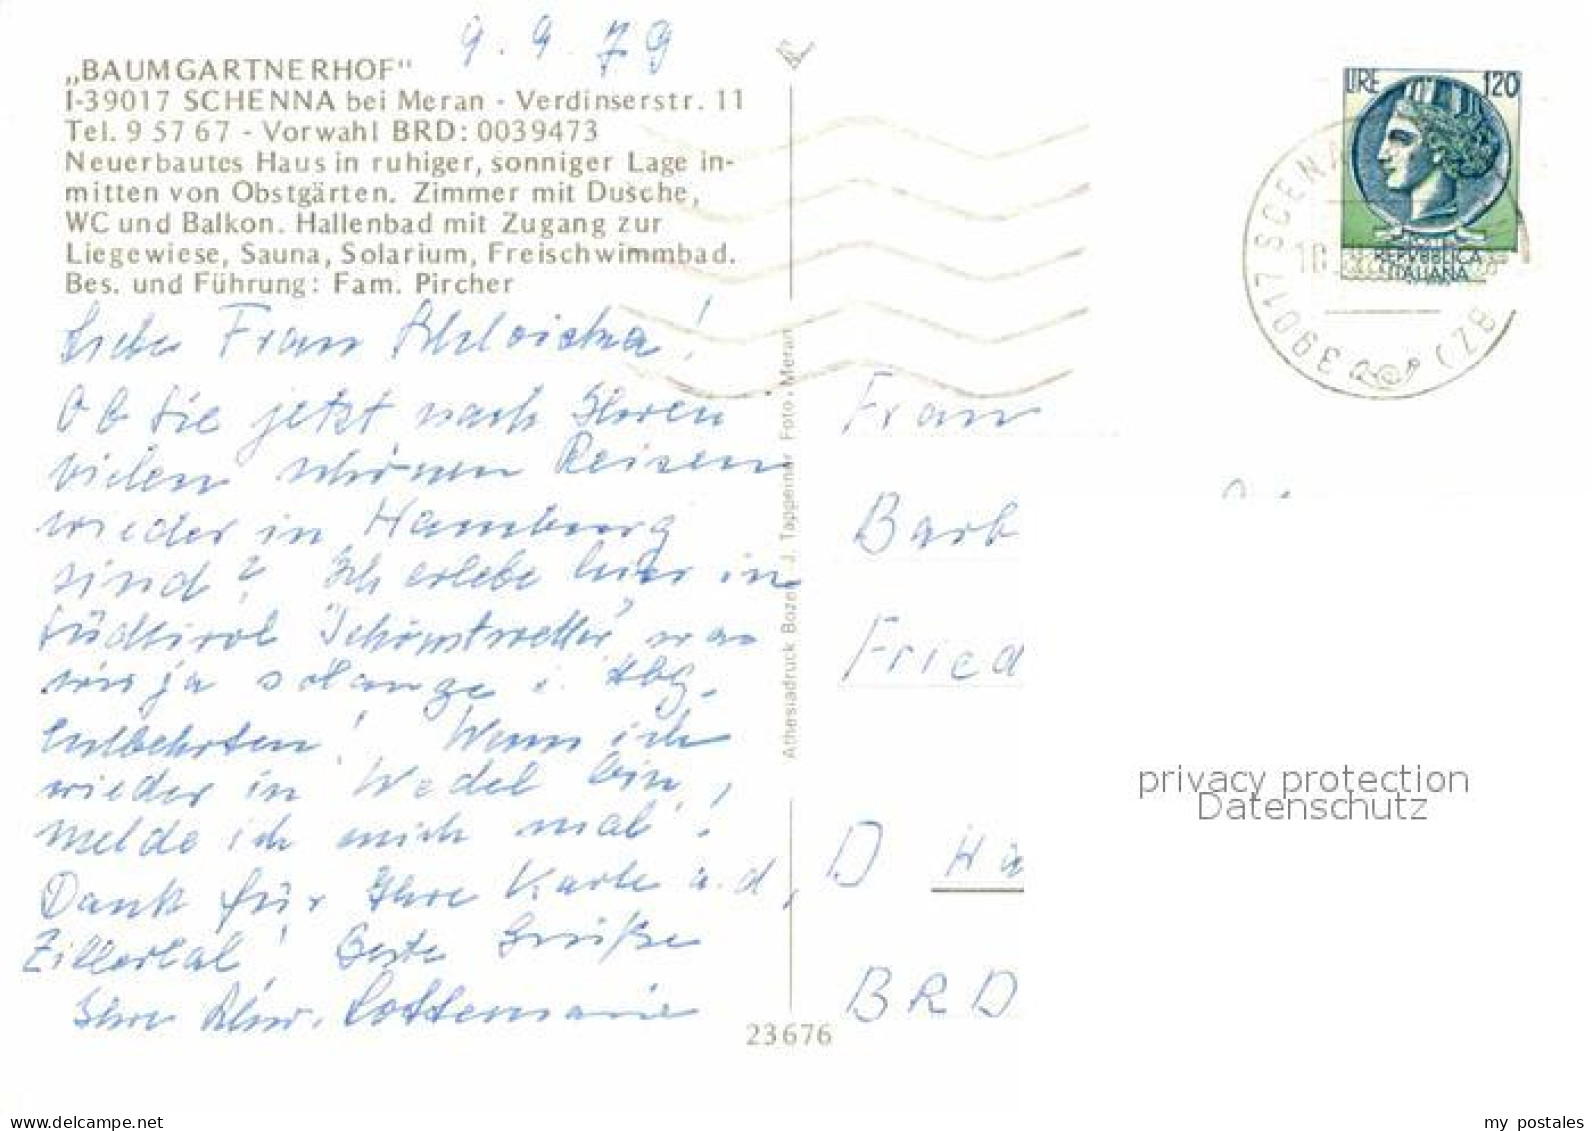 9.9.79
„BAUMGARTNERHOF"
I-39017 SCHENNA bei Meran - Verdinserstr. 11
Tel. 9 57 67 - Vorwahl BRD: 0039473
Neuerbautes Haus in ruhiger, sonniger Lage in-
mitten von Obstgärten. Zimmer mit Dusche,
WC und Balkon. Hallenbad mit Zugang zur
Liegewiese, Sauna, Solarium, Freischwimmbad.
Bes. und Führung: Fam. Pircher
Liebe Frau
Ob Sie jetzt nach Ihren
vielen schönen Reisen
wieder in Hamburg
sind? Ich erlebe hier in
Südtirol "Schönstwetter", was
wir ja solange i. Hbg.
entbehrten! Wenn ich
wieder in Wedel bin,
melde ich mich mal!
Dank für Ihre Karte a. d.
Zillertal! Beste Grüße
Ihre Lottemarie
Athesiadruck Bozen. J. Tappeiner Foto, Meran
23676
LIRE 120
REPVBBLICA
ITALIANA
39017 SCENA (ZB
10
Frau
Barb
Fried
D Ha
BRD
privacy protection
Datenschutz
my postales